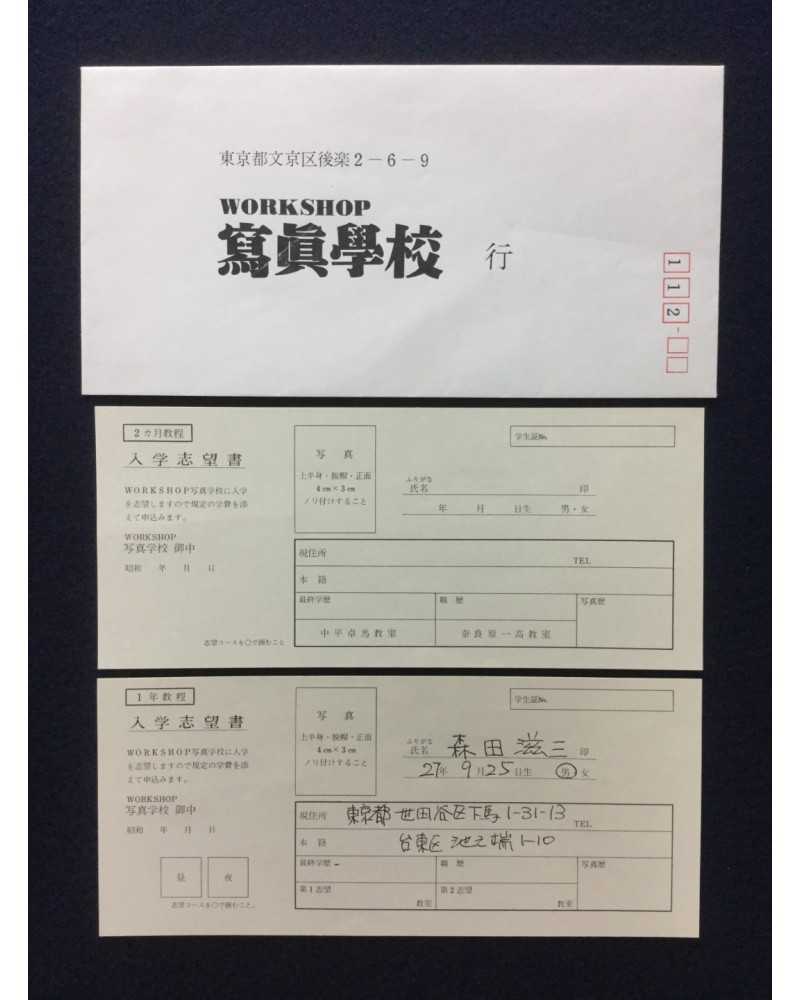 東京都文京区後楽2－6－9
WORKSHOP
寫眞學校 行
112-
2カ月教程
入学志望書
WORKSHOP写真学校に入学
を志望しますので規定の学費を添
えて申込みます。
WORKSHOP
写真学校 御中
昭和 年 月 日
志望コースを○で囲むこと
写 真
上半身・脱帽・正面
4cm×3cm
ノリ付けすること
学生証No.
ふりがな
氏名 印
年 月 日生 男・女
現住所 TEL
本 籍
最終学歴 職 歴 写真歴
中平卓馬教室 奈良原一高教室
1年教程
入学志望書
WORKSHOP写真学校に入学
を志望しますので規定の学費を添
えて申込みます。
WORKSHOP
写真学校 御中
昭和 年 月 日
昼 夜
志望コースを○で囲むこと。
写 真
上半身・脱帽・正面
4cm×3cm
ノリ付けすること
学生証No.
ふりがな
氏名 森田滋三 印
27年 9月25日生 男 女
現住所 東京都世田谷区下馬1-31-13 TEL.
本 籍 台東区池之端1-10
最終学歴 職 歴 写真歴
第1志望 教室 第2志望 教室